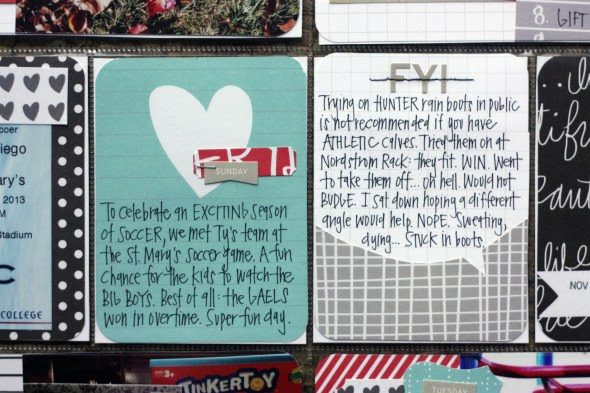 8. GIFT
occer
iego
ary's
2013
Stadium
C
COLLEGE
SUNDAY
To celebrate an EXCITING season
of SOCCER, we met Ty's team at
the St. Mary's soccer game. A fun
chance for the kids to watch the
BIG BOYS. Best of all: the GAELS
won in overtime. Super fun day.
FYI
Trying on HUNTER rain boots in public
is not recommended if you have
ATHLETIC calves. They them on at
Nordstrom Rack: they fit. WIN. Went
to take them off... oh hell. Would not
BUDGE. I sat down hoping a different
angle would help. NOPE. Sweating,
dying... STUCK in boots.
NOV
AGES 3+
TINKERTOY
TUESDAY